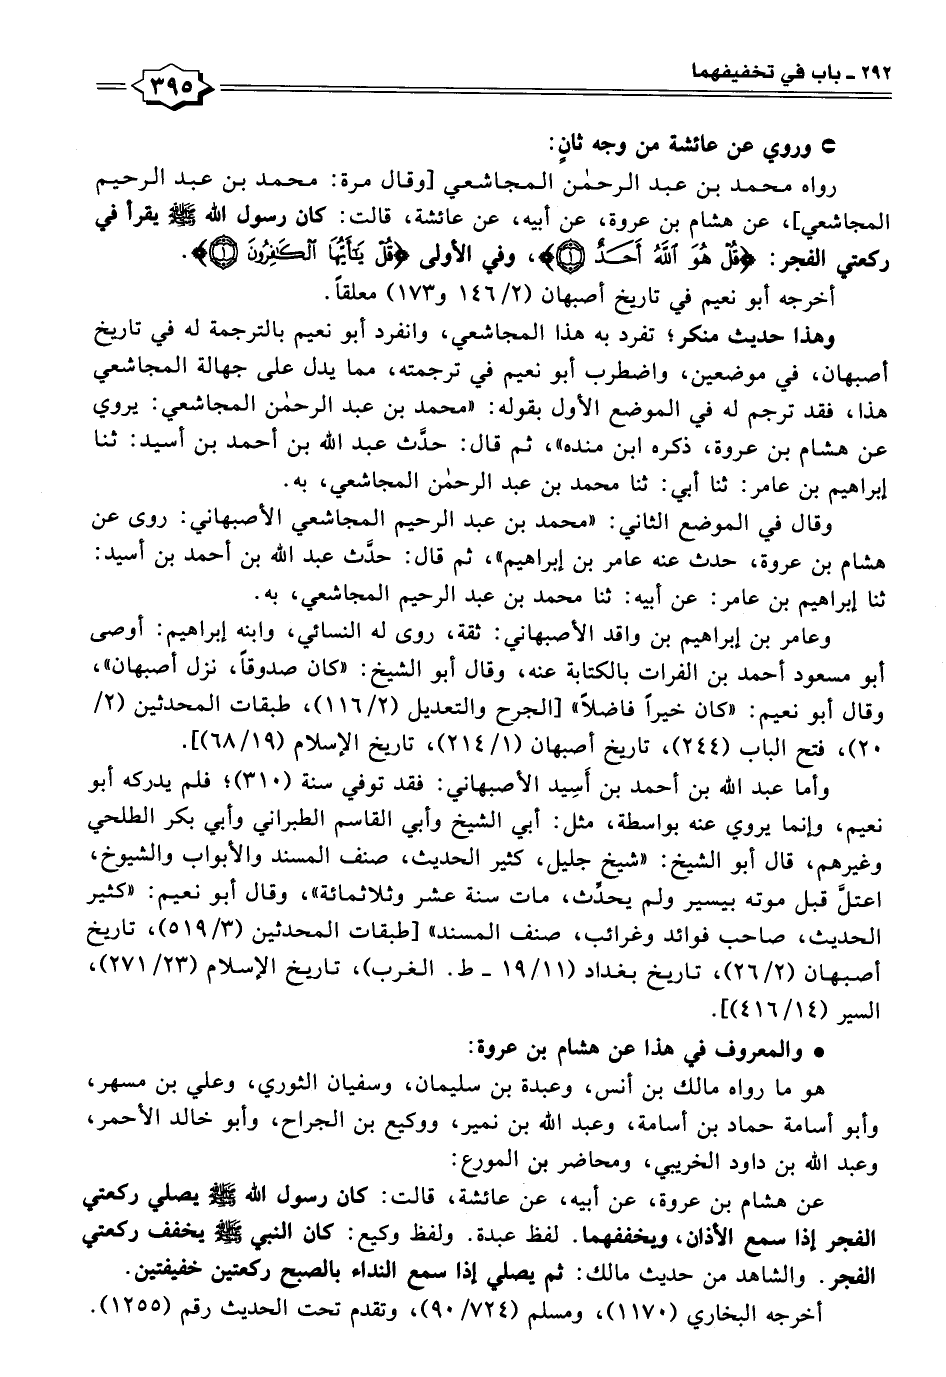 ٢٩٢ - باب في تخفيفهما
٣٩٥
وروي عن عائشة من وجه ثانٍ:
رواه محمد بن عبد الرحمٰن المجاشعي [وقال مرة: محمد بن عبد الرحيم
المجاشعي]، عن هشام بن عروة، عن أبيه، عن عائشة، قالت: كان رسول الله ﷺ يقرأ في
ركعتي الفجر: ﴿قُلْ هُوَ ٱللَّهُ أَحَدٌ ۝١﴾، وفي الأولى ﴿قُلْ يَٰٓأَيُّهَا ٱلْكَٰفِرُونَ ۝١﴾.
أخرجه أبو نعيم في تاريخ أصبهان (١٤٦/٢ و١٧٣) معلقاً.
وهذا حديث منكر؛ تفرد به هذا المجاشعي، وانفرد أبو نعيم بالترجمة له في تاريخ
أصبهان، في موضعين، واضطرب أبو نعيم في ترجمته، مما يدل على جهالة المجاشعي
هذا، فقد ترجم له في الموضع الأول بقوله: «محمد بن عبد الرحمٰن المجاشعي: يروي
عن هشام بن عروة، ذكره ابن منده»، ثم قال: حدَّث عبد الله بن أحمد بن أسيد: ثنا
إبراهيم بن عامر: ثنا أبي: ثنا محمد بن عبد الرحمٰن المجاشعي، به.
وقال في الموضع الثاني: «محمد بن عبد الرحيم المجاشعي الأصبهاني: روى عن
هشام بن عروة، حدث عنه عامر بن إبراهيم»، ثم قال: حدَّث عبد الله بن أحمد بن أسيد:
ثنا إبراهيم بن عامر: عن أبيه: ثنا محمد بن عبد الرحيم المجاشعي، به.
وعامر بن إبراهيم بن واقد الأصبهاني: ثقة، روى له النسائي، وابنه إبراهيم: أوصى
أبو مسعود أحمد بن الفرات بالكتابة عنه، وقال أبو الشيخ: «كان صدوقاً، نزل أصبهان»،
وقال أبو نعيم: «كان خيراً فاضلاً» [الجرح والتعديل (١١٦/٢)، طبقات المحدثين (٢/
٢٠)، فتح الباب (٢٤٤)، تاريخ أصبهان (٢١٤/١)، تاريخ الإسلام (٦٨/١٩)].
وأما عبد الله بن أحمد بن أَسِيد الأصبهاني: فقد توفي سنة (٣١٠)؛ فلم يدركه أبو
نعيم، وإنما يروي عنه بواسطة، مثل: أبي الشيخ وأبي القاسم الطبراني وأبي بكر الطلحي
وغيرهم، قال أبو الشيخ: «شيخ جليل، كثير الحديث، صنف المسند والأبواب والشيوخ،
اعتلَّ قبل موته بيسير ولم يحدِّث، مات سنة عشر وثلاثمائة»، وقال أبو نعيم: «كثير
الحديث، صاحب فوائد وغرائب، صنف المسند» [طبقات المحدثين (٥١٩/٣)، تاريخ
أصبهان (٢٦/٢)، تاريخ بغداد (١٩/١١ - ط. الغرب)، تاريخ الإسلام (٢٧١/٢٣)،
السير (٤١٦/١٤)].
• والمعروف في هذا عن هشام بن عروة:
هو ما رواه مالك بن أنس، وعبدة بن سليمان، وسفيان الثوري، وعلي بن مسهر،
وأبو أسامة حماد بن أسامة، وعبد الله بن نمير، ووكيع بن الجراح، وأبو خالد الأحمر،
وعبد الله بن داود الخريبي، ومحاضر بن المورع:
عن هشام بن عروة، عن أبيه، عن عائشة، قالت: كان رسول الله ﷺ يصلي ركعتي
الفجر إذا سمع الأذان، ويخففهما. لفظ عبدة. ولفظ وكيع: كان النبي ﷺ يخفف ركعتي
الفجر. والشاهد من حديث مالك: ثم يصلي إذا سمع النداء بالصبح ركعتين خفيفتين.
أخرجه البخاري (١١٧٠)، ومسلم (٩٠/٧٢٤)، وتقدم تحت الحديث رقم (١٢٥٥).